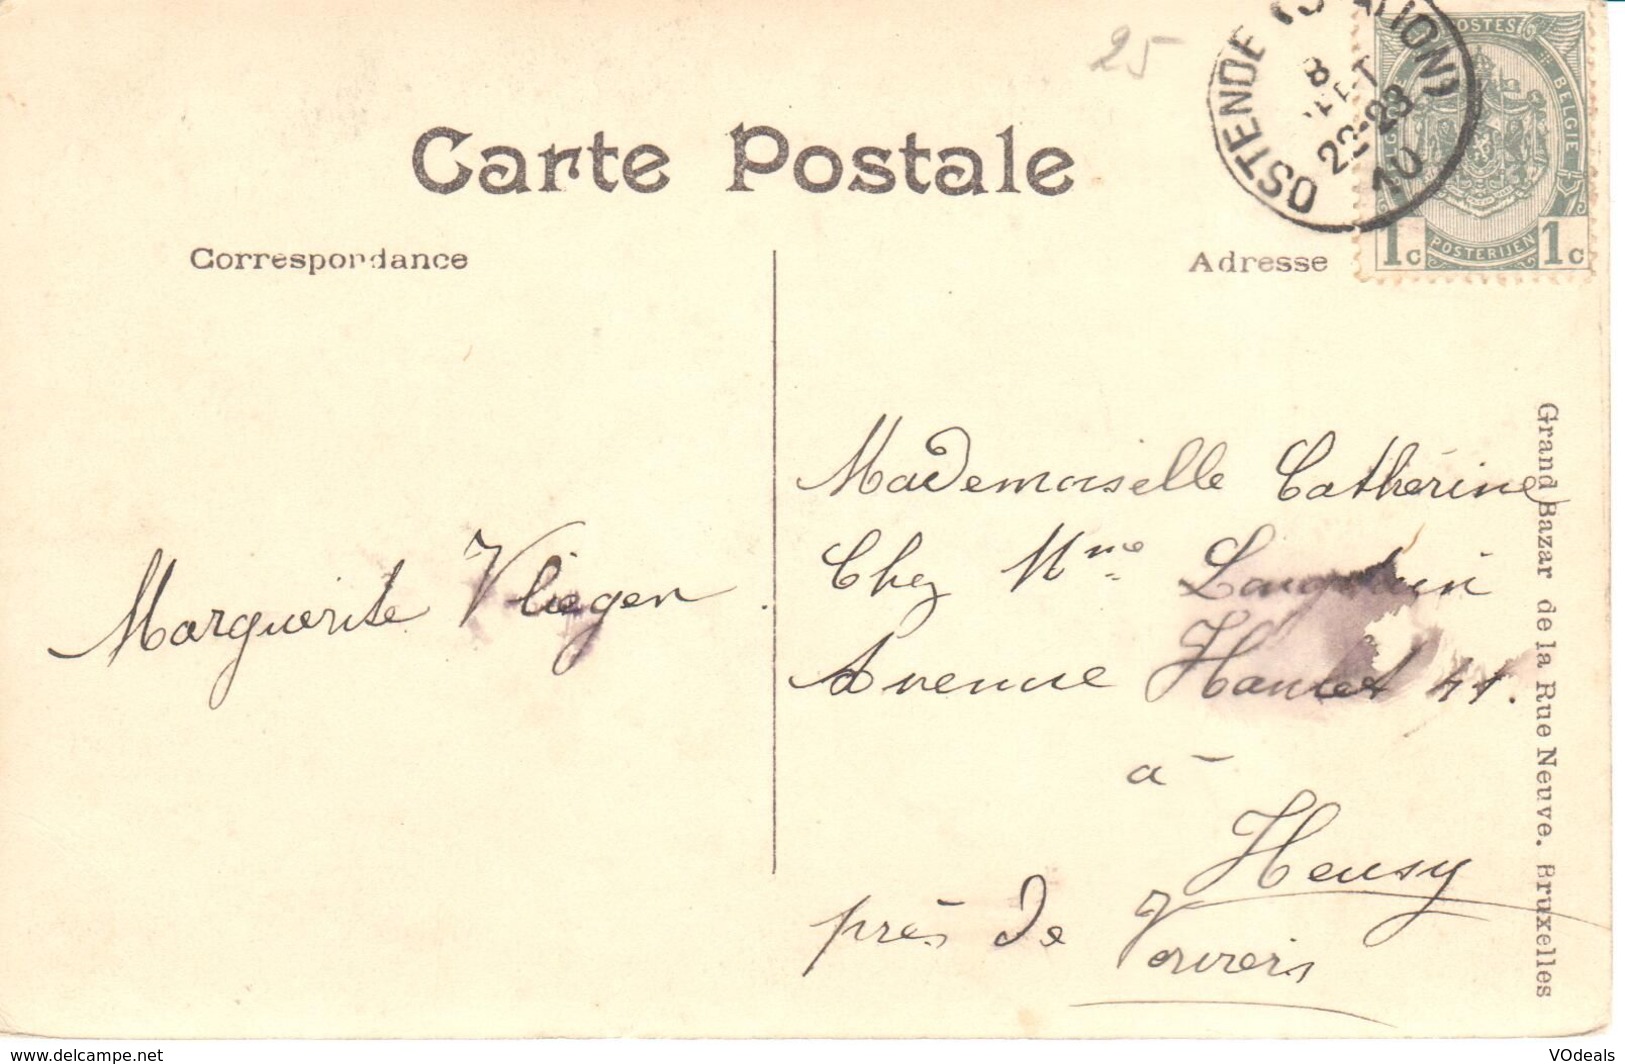 25
Carte Postale
OSTENDE (STATION)
8
22-23
10
POSTES
BELGIE
POSTERIJEN
1c 1c
Correspondance
Adresse
Mademoiselle Cathérine
Chez Mme
Avenue Hanlet 41.
à
Heusy
près de Verviers
Marguerite Vliegen.
Grand Bazar de la Rue Neuve. Bruxelles
www.delcampe.net
VOdeals